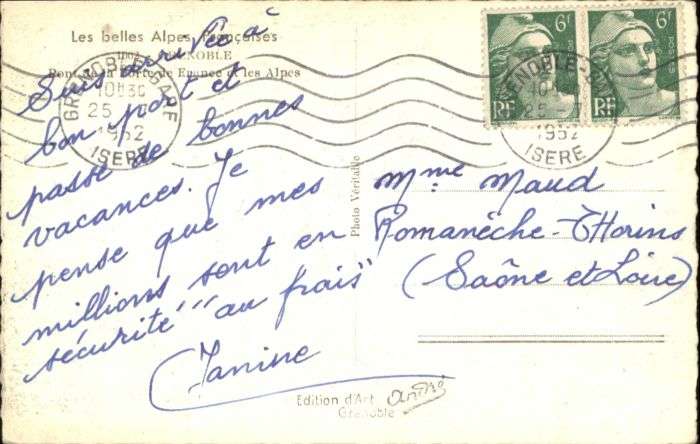 Les belles Alpes Françaises
GRENOBLE
Pont de la Porte de France et les Alpes
GRENOBLE-GARE
10H30
25
1952
ISERE
6F
RF
6F
RF
1952
ISERE
Suis arrivée à
bon port et
passe de bonnes
vacances. Je
pense que mes
millions sont en
sécurité "au frais"
Janine
Photo Véritable
Mme Maud
Romanèche-Thorins
(Saône et Loire)
Edition d'Art
André
Grenoble